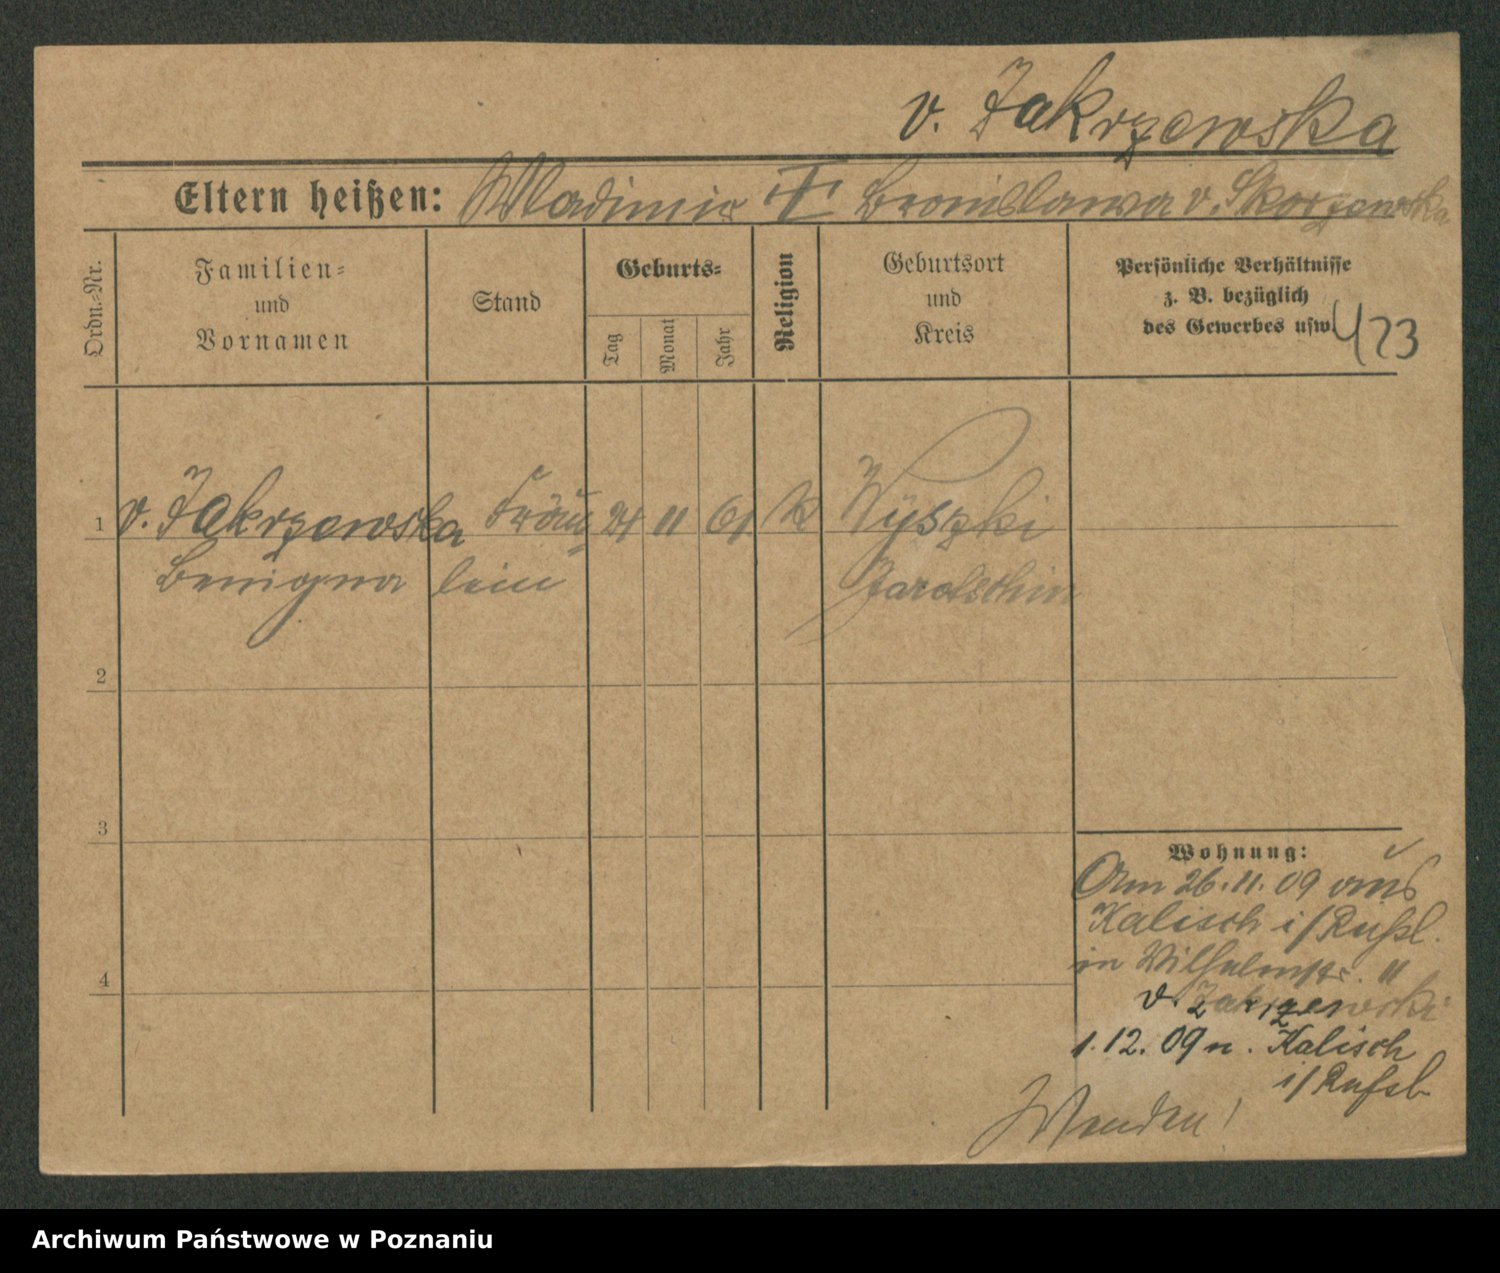 v. Zakrzewska
Eltern heißen: Wladimir ✝ Bronislawa v. Skorzewska
Ordn.-Nr.
Familien-
und
Vornamen
Stand
Geburts-
Tag
Monat
Jahr
Religion
Geburtsort
und
Kreis
Persönliche Verhältnisse
z. B. bezüglich
des Gewerbes usw.
423
1 v. Zakrzewska Fräu- 21 11 61 k Wyszki
Benigna lein Jarotschin
2
3
4
Wohnung:
Am 26.11.09 aus
Kalisch i/Rußl.
in Wilhelmstr. 11
v. Zakrzewski
1.12.09 n. Kalisch
i/Rußl.
Wenden!
Archiwum Państwowe w Poznaniu